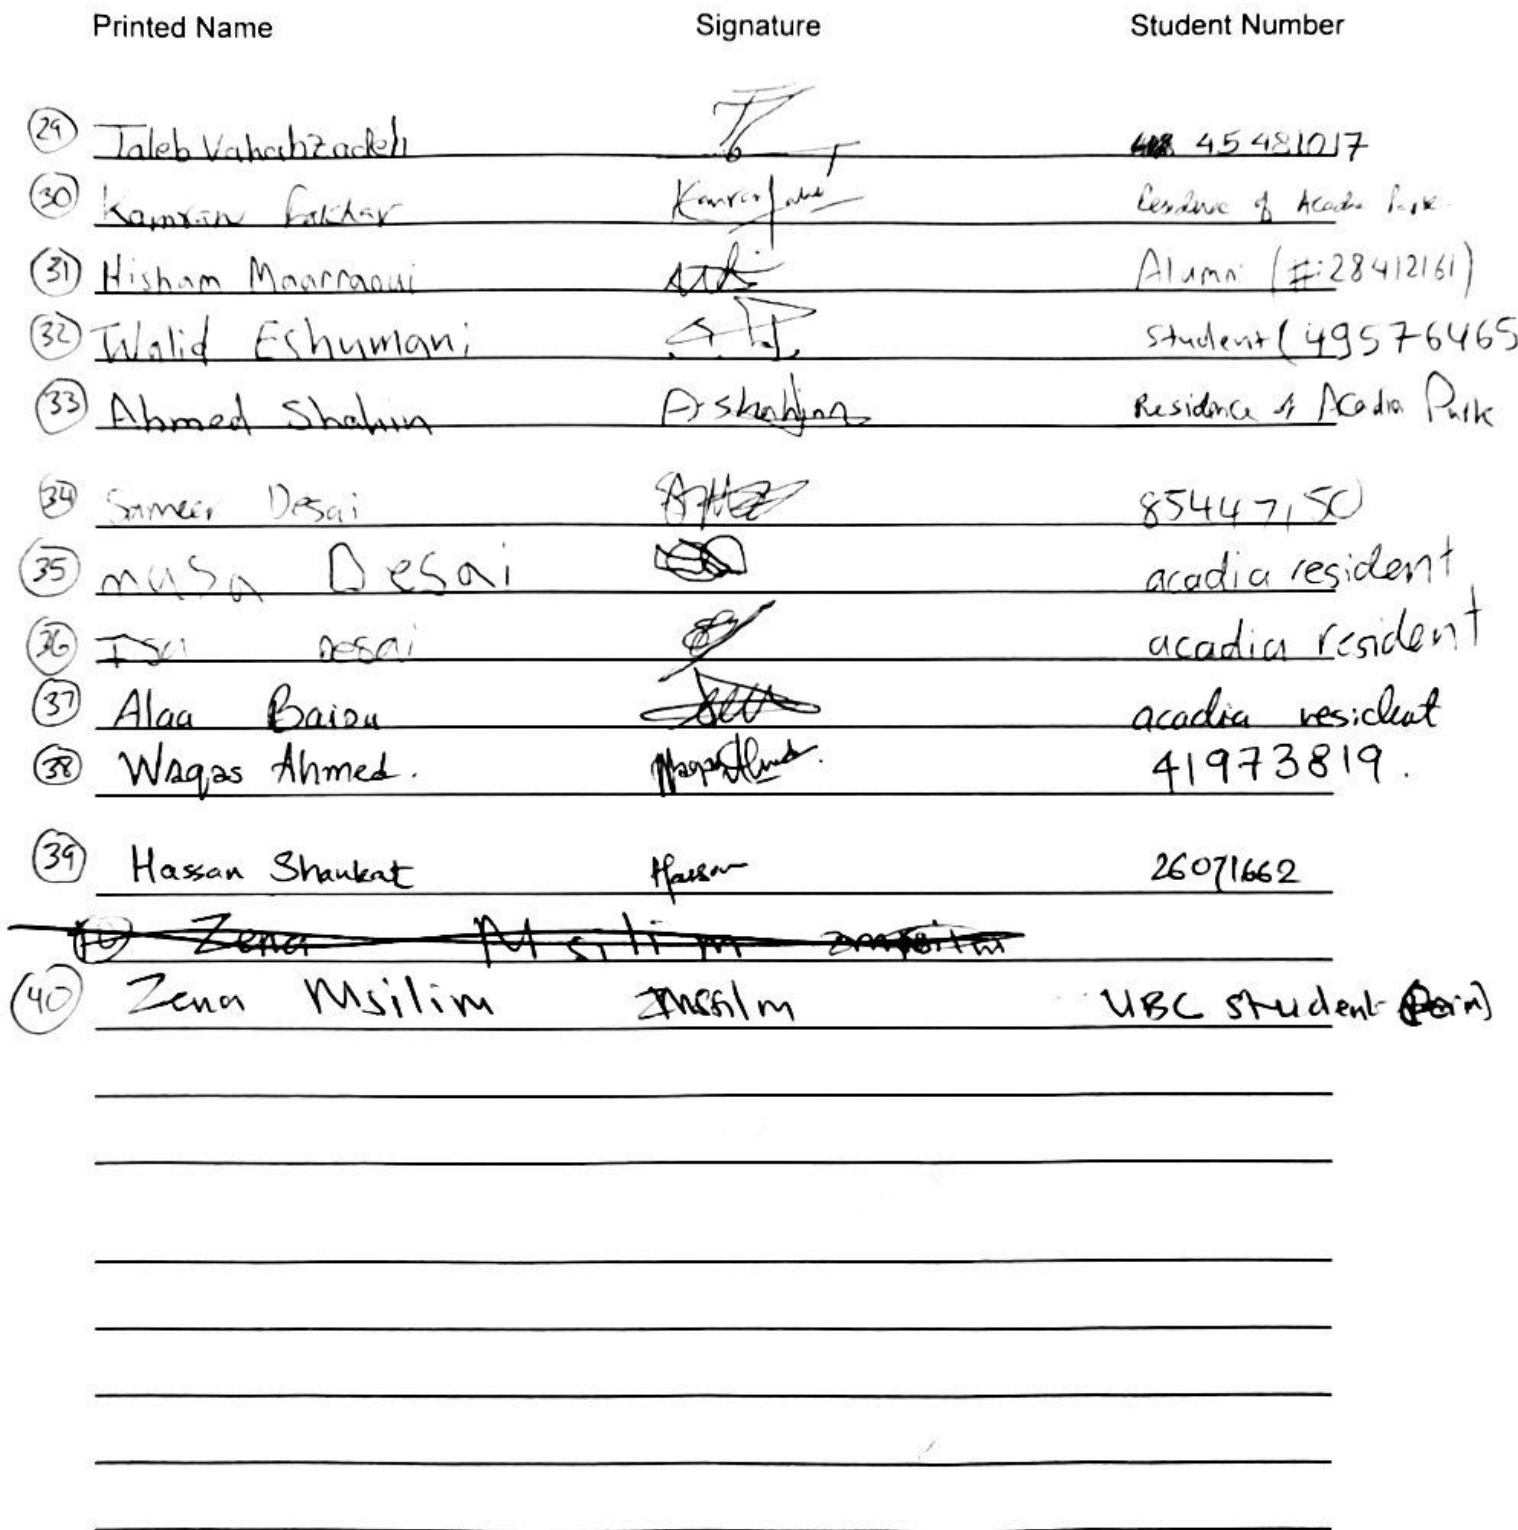 Printed Name Signature Student Number
29 Taleb Vahabzadeh 45481017
30 Kamran Residence of Acadia Park
31 Hisham Maarraoui Alumni (#:28412161)
32 Walid Eshumani Student (49576465
33 Ahmed Shahin Residence of Acadia Park
34 Sameer Desai 85447150
35 musa Desai acadia resident
36 Isa Desai acadia resident
37 Alaa Baiou acadia resident
38 Waqas Ahmed. Waqas Ahmed. 41973819.
39 Hassan Shaukat Hassan 26071662
40 Zena Msilim
40 Zena Msilim Zmsilm UBC student